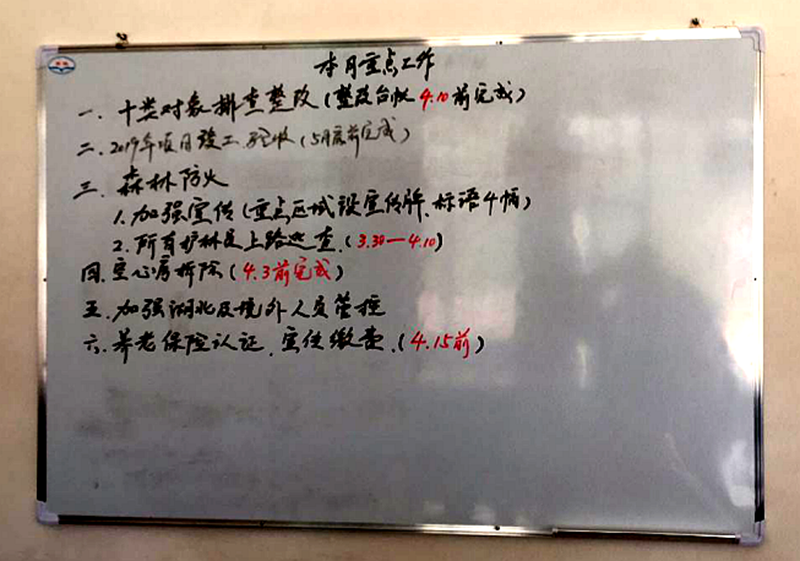 本月重点工作
一. 十类对象排查整改(整改台帐4.10前完成)
二. 2019年项目竣工验收(5月底前完成)
三. 森林防火
1. 加强宣传(重点区域设宣传牌、标语4幅)
2. 所有护林员上路巡查.(3.30—4.10)
四. 空心房拆除(4.3前完成)
五. 加强湖北及境外人员管控
六. 养老保险认证、宣传缴费.(4.15前)